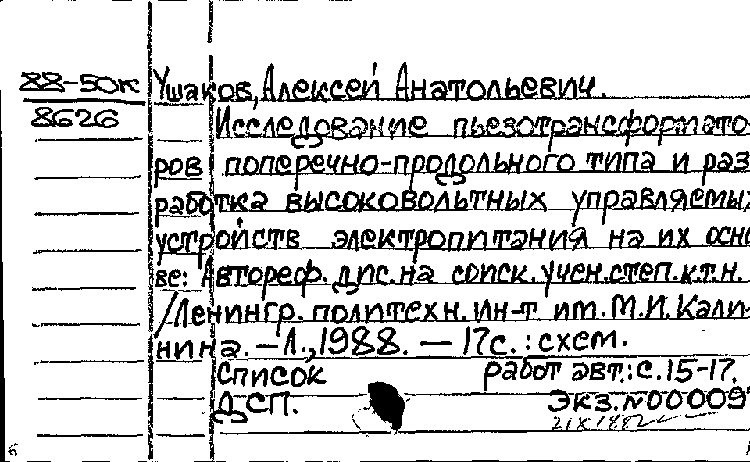 88-50к Ушаков, Алексей Анатольевич.
8626 Исследование пьезотрансформато-
ров поперечно-продольного типа и раз-
работка высоковольтных управляемых
устройств электропитания на их осно-
ве: Автореф. дис. на соиск. учен. степ. к.т.н.
/Ленингр. политехн. ин-т им. М.И. Кали-
нина. – Л., 1988. – 17с. : схем.
Список работ авт.: с. 15-17.
ДСП. Экз. №00009